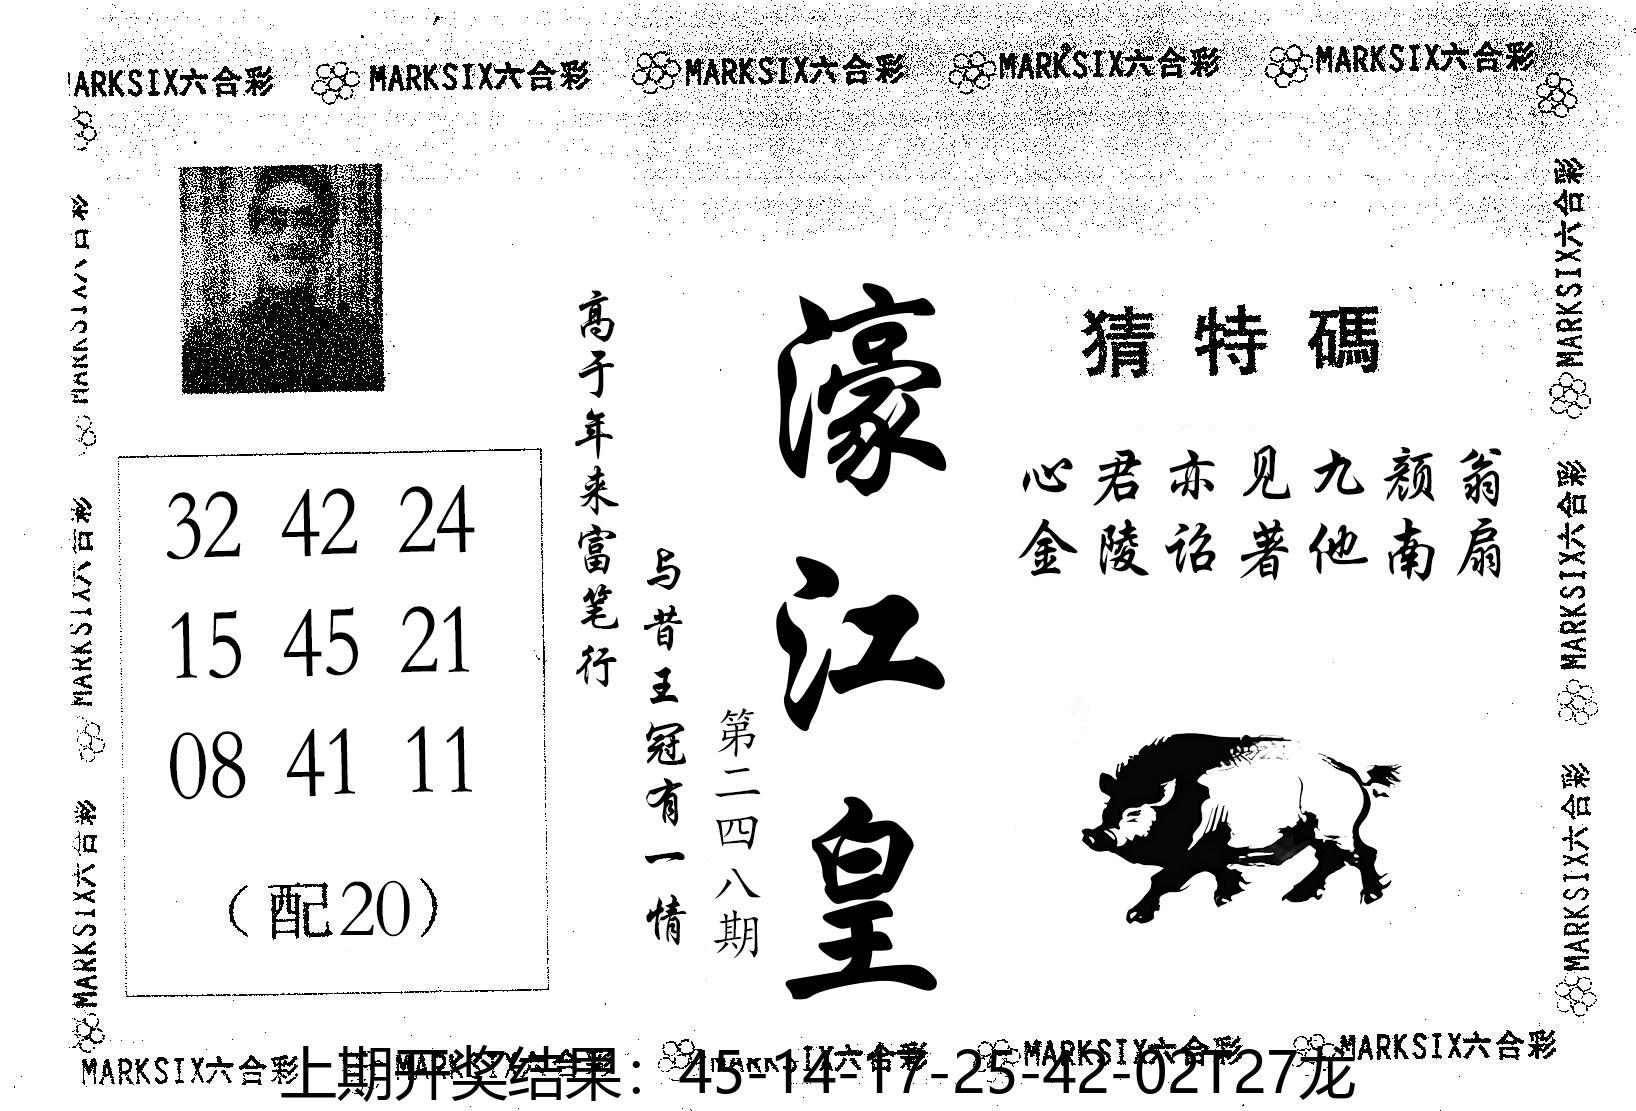 MARKSIX六合彩 MARKSIX六合彩 MARKSIX六合彩 MARKSIX六合彩 MARKSIX六合彩
猜特碼
心君亦见九颜翁
金陵诏著他南扇
濠江皇
第二四八期
与昔王冠有一情
高于年来富笔行
32 42 24
15 45 21
08 41 11
（配20）
MARKSIX六合彩
MARKSIX六合彩
MARKSIX六合彩
MARKSIX六合彩
MARKSIX六合彩
MARKSIX六合彩
MARKSIX六合彩 MARKSIX六合彩 MARKSIX六合彩 MARKSIX六合彩 MARKSIX六合彩
上期开奖结果：45-14-17-25-42-02T27龙